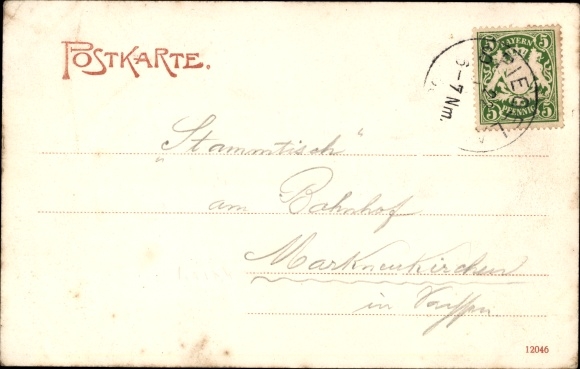 POSTKARTE.
BAYERN
5 5
5 PFENNIG 5
6-7 Nm.
„Stammtisch“
am Bahnhof
Markneukirchen
in
12046